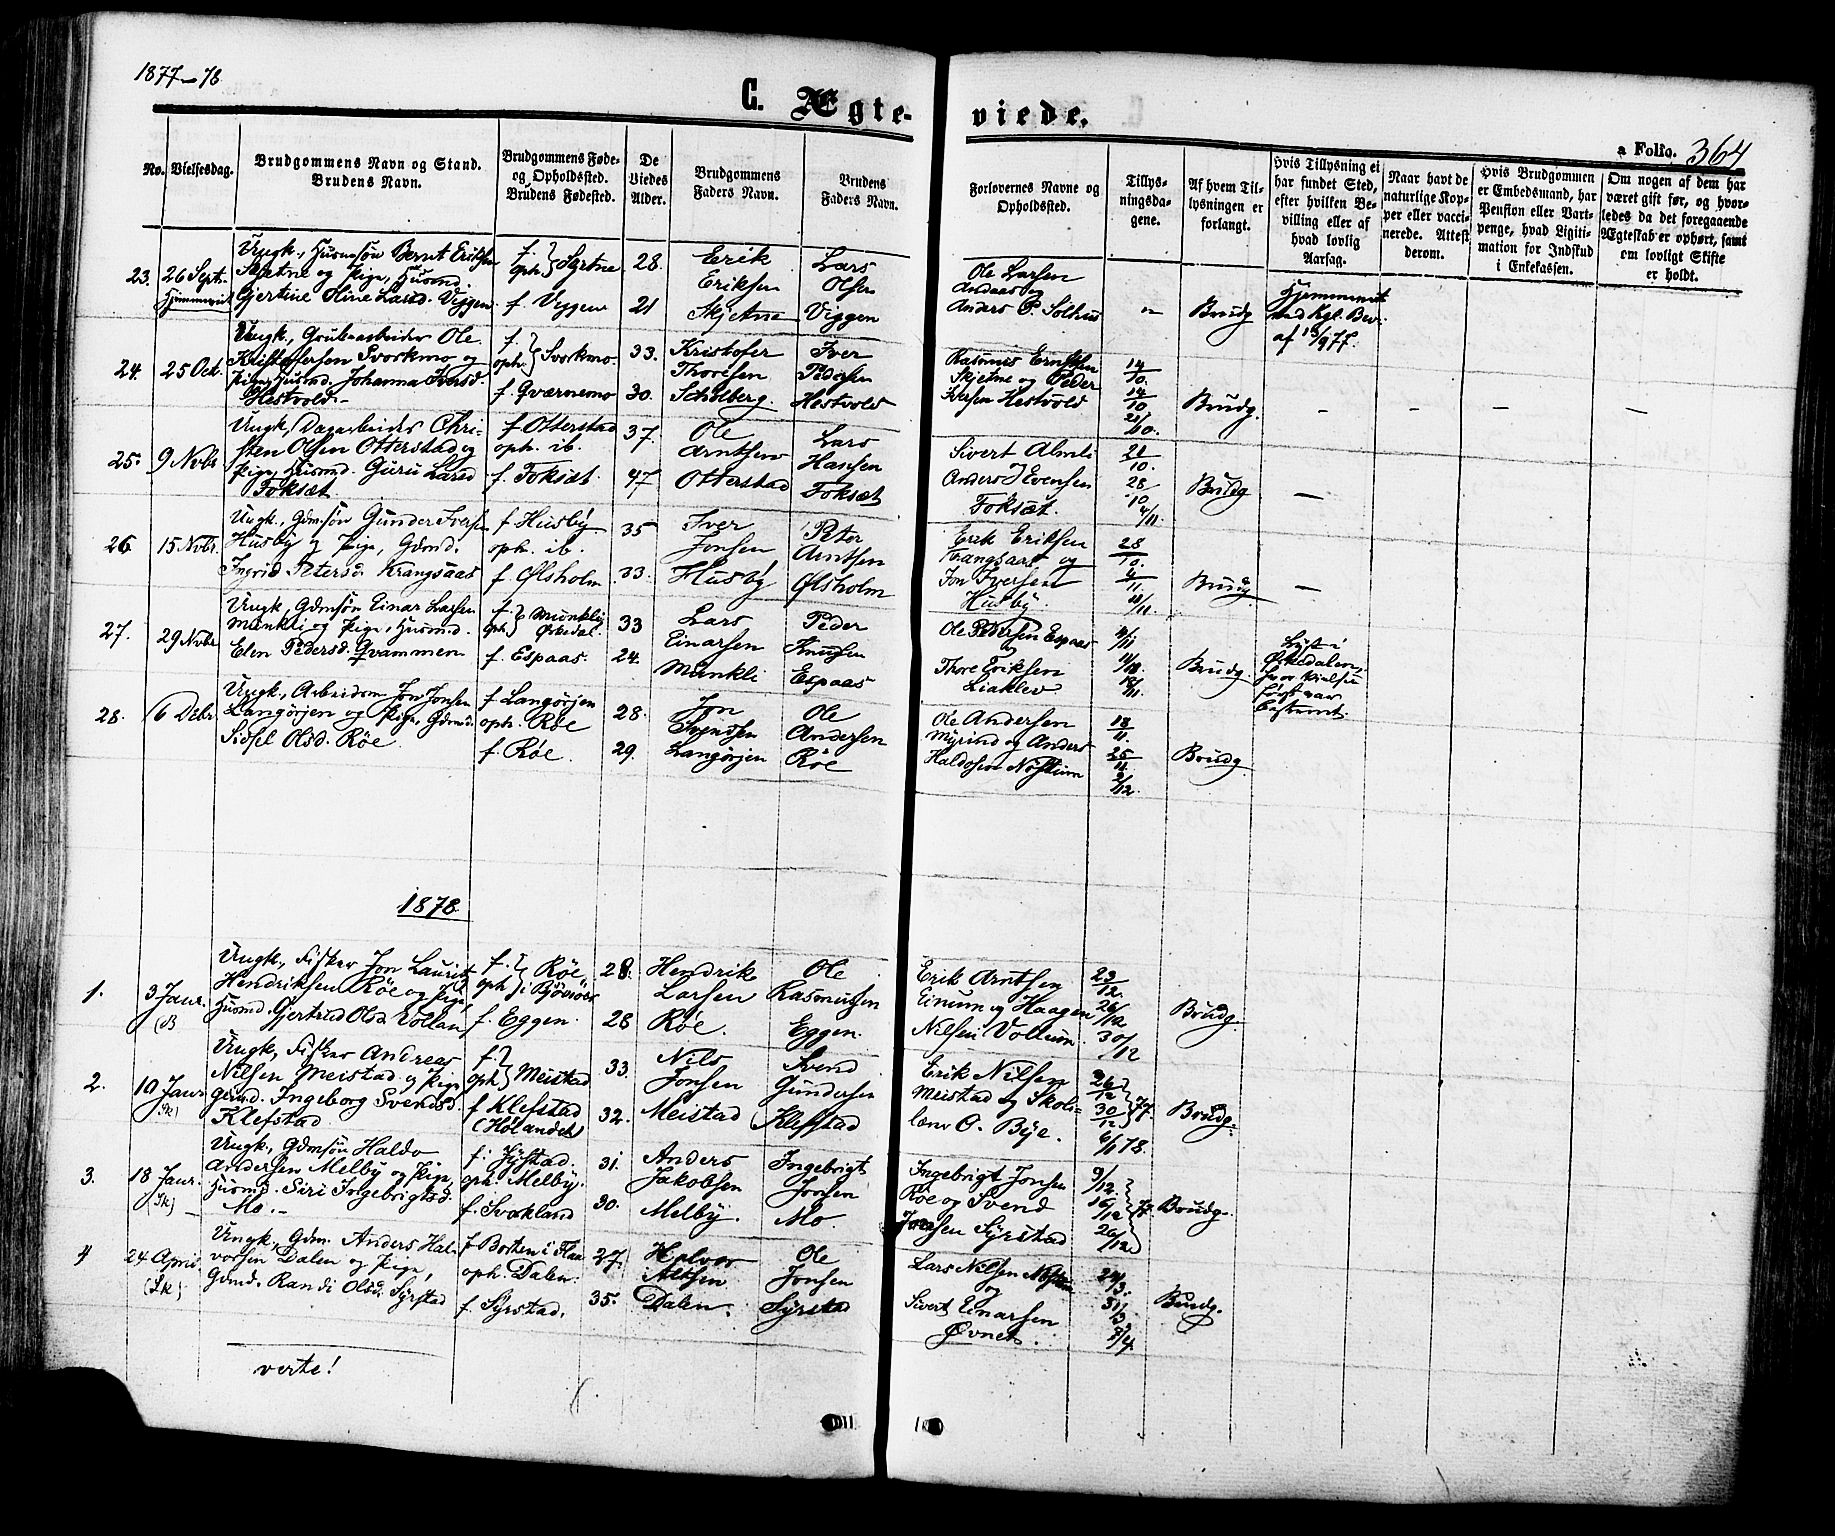 1877-78
C. Ægte-
viede.
a Folio. 364
No.
Vielsesdag.
Brudgommens Navn og Stand.
Brudens Navn.
Brudgommens Føde-
og Opholdsted.
Brudens Fødested.
De
Viedes
Alder.
Brudgommens
Faders Navn.
Brudens
Faders Navn.
Forlovernes Navne og
Opholdsted.
Tillys-
ningsda-
gene.
Af hvem Til-
lysningen er
forlangt.
Hvis Tillysning ei
har fundet Sted,
efter hvilken Be-
villing eller af
hvad lovlig
Aarsag.
Naar havt de
naturlige Kop-
per eller vacci-
nerede. Attest
derom.
Hvis Brudgommen
er Embedsmand, har
Pension eller Vart-
penge, hvad Ligiti-
mation for Indskud
i Enkekassen.
Om nogen af dem har
været gift før, og hvor-
ledes da det foregaaende
Ægteskab er ophørt, samt
om lovligt Skifte
er holdt.
23. 26 Sept.
Hjemmeviet
Ungk., Husmsøn Bernt Eriksen
Skjetne og Pige, Husmd.
Gjertine Stine Larsd. Viggen
f. } Skjetne
oph.
f. Viggen
28.
21
Erik
Eriksen
Skjetne
Lars
Olsen
Viggen
Ole Larsen
Andaas og
Anders P. Solhus
"
Brudg
Hjemmeviet
med Kgl. Bev.
af 13/9 77.
24. 25 Oct.
Ungk., Grubearbeider Ole
Kristofersen Svorkmo og
Pige, Husmd. Johanna Iversd.
Hestvold.-
f.
oph. } Svorkmo
f Gværnemo
33.
30.
Kristofer
Thoresen
Scholberg.
Iver
Pedersen
Hestvold
Rasmus Erntsen
Skjetne og Peder
Iversen Hestvold
14/10.
14/10
21/10.
Brudg. - - - -
25. 9 Novbr
Ungk., Dagarbeider Chri-
sten Olsen Otterstad og
Pige, Husmd. Guru Larsd
Foksæt
f Otterstad
oph. ib.
f. Foksæt.
37.
47
Ole
Arntsen
Otterstad
Lars
Hansen
Foksæt
Sivert Almli
Anders J Evensen
Foksæt.
21/10.
28/10
4/11.
Brudg -
26 15 Novbr.
Ungk., Gdmsøn Gunder Iversen
Husby og Pige, Gdmd.
Ingrid Petersd. Krangsaas
f Husby.
oph. ib.
f Ølsholm
35
33.
Iver
Jonsen
Husby
Peter
Arntsen
Ølsholm
Erik Eriksen
Krangsaas og
Jon Iversen
Husby.
28/10.
4/11.
11/11
Brudg. -
27. 29 Novbr
Ungk., Gdmsøn Einar Larsen
Munkli og Pige, Husmd.
Elen Pedersd. Qvammen
f. } Munkli
oph } Ørkedal.
f. Espaas.
33
24.
Lars
Einarsen
Munkli
Peder
Knudsen
Espaas
Ole Pedersen Espaas
Thore Eriksen
Liaklev
4/11
11/11
18/11.
Brudg.
Lyst i
Ørkedalen,
hvor Vielsen
først var
bestemt.
28. 6 Debr
Ungk., Arbeidsm Jon Jonsen
Langørjen og Pige, Gdmd.
Sidsel Olsd. Røe
f Langørjen
oph. Røe
f Røe.
28.
29.
Jon
Svendsen
Langørjen
Ole
Andersen
Røe
Ole Andersen
Myrind og Anders
Haldosen Nøstum
18/11.
25/11.
2/12.
Brudg
1878
1. 3 Janr.
(B
Ungk., Fisker Jon Laurits
Hendriksen Røe og Pige,
Husmd. Gjertrud Olsd. Vollan
f. } Røe
oph } i Bjørnør
f. Eggen.
28.
28
Hendrike
Larsen
Røe.
Ole
Rasmussen
Eggen.
Erik Arntsen
Einum og Haagen
Nilsen Vollum.
23/12.
26/12
30/12
Brudg.
2. 10 Janr
(Sk)
Ungk., Fisker Andreas
Nilsen Meistad og Pige
Gdmd. Ingeborg Svendsd.
Klefstad
f. }
oph } Meistad
f Klefstad
(Hølandet)
33.
32.
Nils
Jonsen
Meistad
Svend
Gundersen
Klefstad
Erik Nilsen
Meistad og Skole-
lærer O. Bye.
26/12 }
30/12 } 77.
6/1 78.
Brudg.
3. 18 Janr.
(Sk)
Ungk., Gdmsøn Haldo
Andersen Melby og Pige,
Husmd. Siri Ingebrigtsd.
Mo.-
f. Systad.
oph. Melby.
f. Svorkland
31.
30.
Anders
Jakobsen
Melby.
Ingebrigt
Jonsen
Mo.
Ingebrigt Jonsen
Røe og Svend
Jonsen Syrstad
9/12.
16/12
26/12
77.
Brudg.
4 24 April
(Sk)
Ungk., Gdm. Anders Hal-
vorsen Dalen og Pige,
Gdmd. Randi Olsd. Syrstad
f. Borten i Flaa
oph. Dalen.
f. Syrstad.
27.
35.
Halvor
Dalen.
Ole
Jonsen
Syrstad
Lars Nilsen
og
Sivert Einarsen
Øvnes.
24/3.
31/3
7/4.
Brudg.
verte!